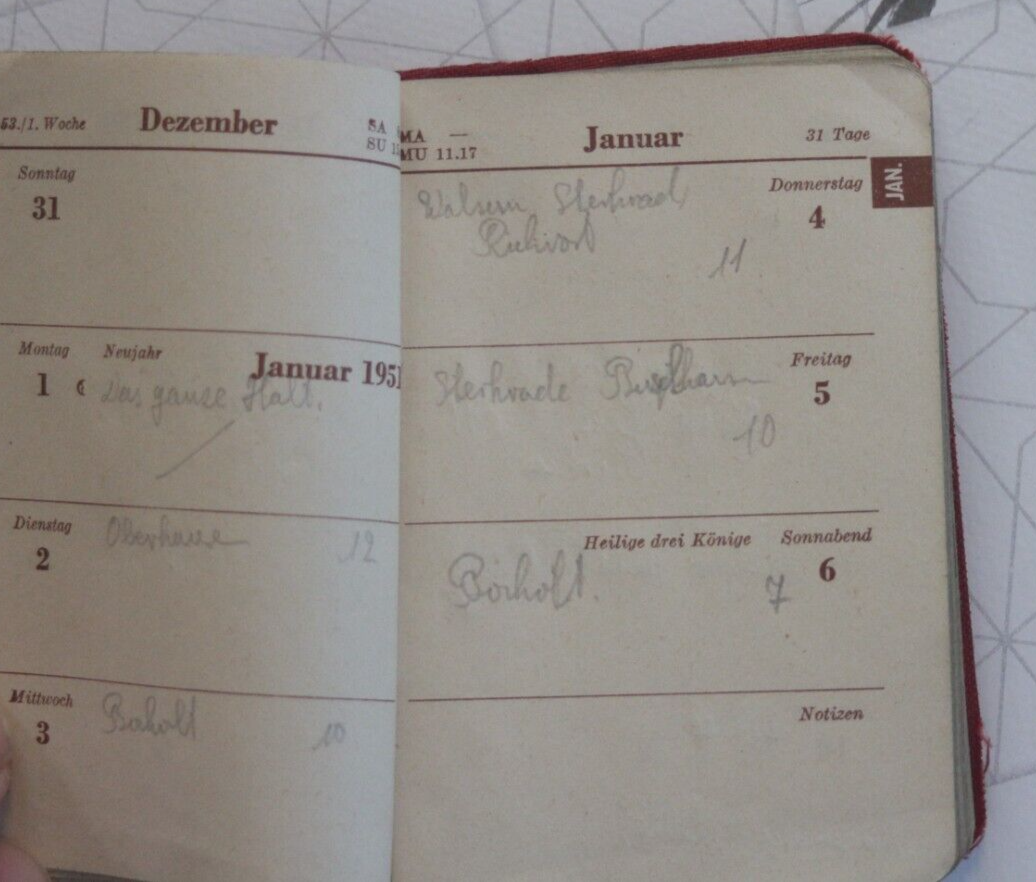 53./1. Woche Dezember SA
SU
Sonntag
31
Montag Neujahr Januar 1951
1 Das ganze
Dienstag
2 Oberhausen 12
Mittwoch
3 Bocholt 10
MA — Januar 31 Tage
MU 11.17
JAN.
Donnerstag
4
Walsum Sterkrade
Ruhrort
11
Freitag
5
Sterkrade
10
Heilige drei Könige Sonnabend
6
Bocholt. 7
Notizen